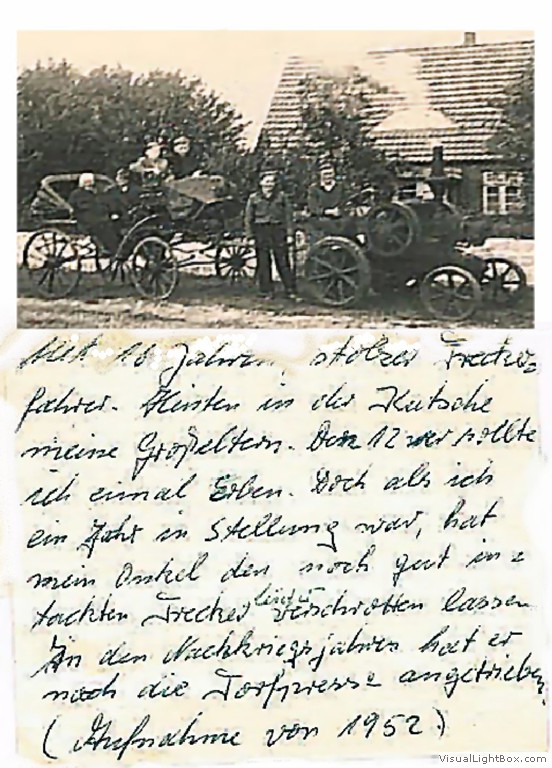 Mit 16 Jahren, stolzer Trecker
fahrer. Hinten in der Kutsche
meine Großeltern. Den 12 er sollte
ich eimal Erben. Doch als ich
ein Jahr in Stellung war, hat
mein Onkel den noch gut in=
tackten Trecker leider verschrotten lassen
In den Nachkriegsjahren hat er
noch die Torfpresse angetrieben.
(Aufnahme von 1952)
VisualLightBox.com